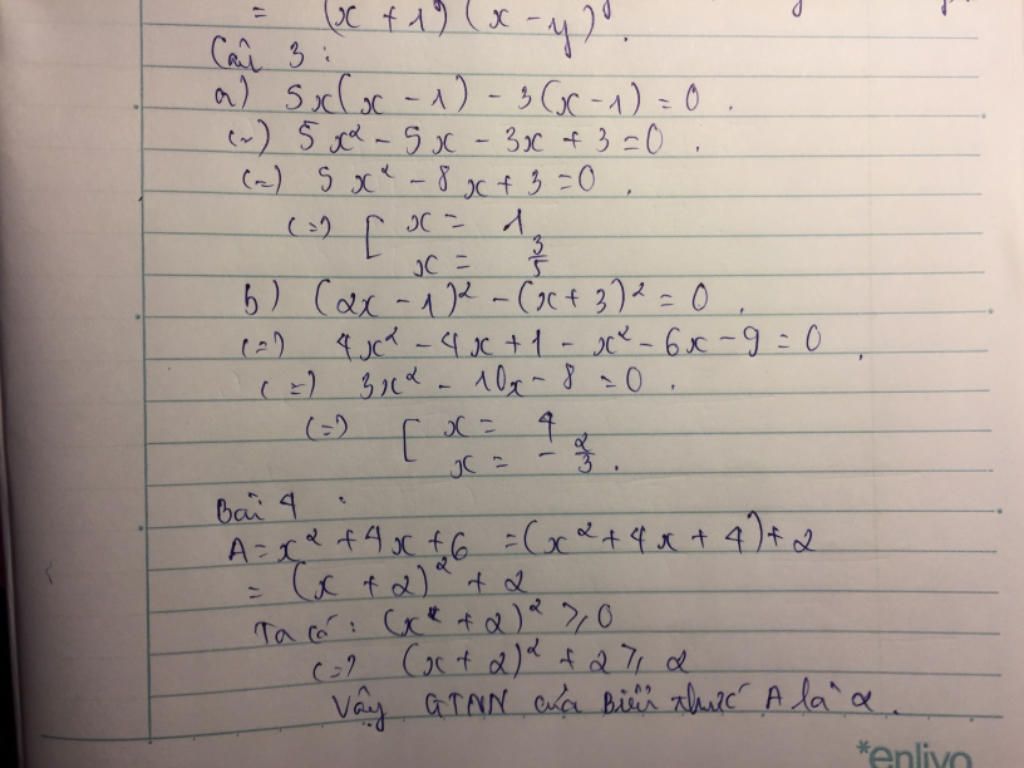 = (x + 1) (x - y).
Câu 3 :
a) 5x(x - 1) - 3(x - 1) = 0 .
(=) 5x² - 5x - 3x + 3 = 0 .
(=) 5x² - 8x + 3 = 0 .
(=) [ x = 1
x = 3/5
b) (2x - 1)² - (x + 3)² = 0 .
(=) 4x² - 4x + 1 - x² - 6x - 9 = 0 .
(=) 3x² - 10x - 8 = 0 .
(=) [ x = 4
x = - 2/3 .
Bài 4 :
A = x² + 4x + 6 = (x² + 4x + 4) + 2
= (x + 2)² + 2
Ta có : (x + 2)² ≥ 0
(=) (x + 2)² + 2 ≥ 2
Vậy GTNN của Biểu thức A là 2 .
*enlivo